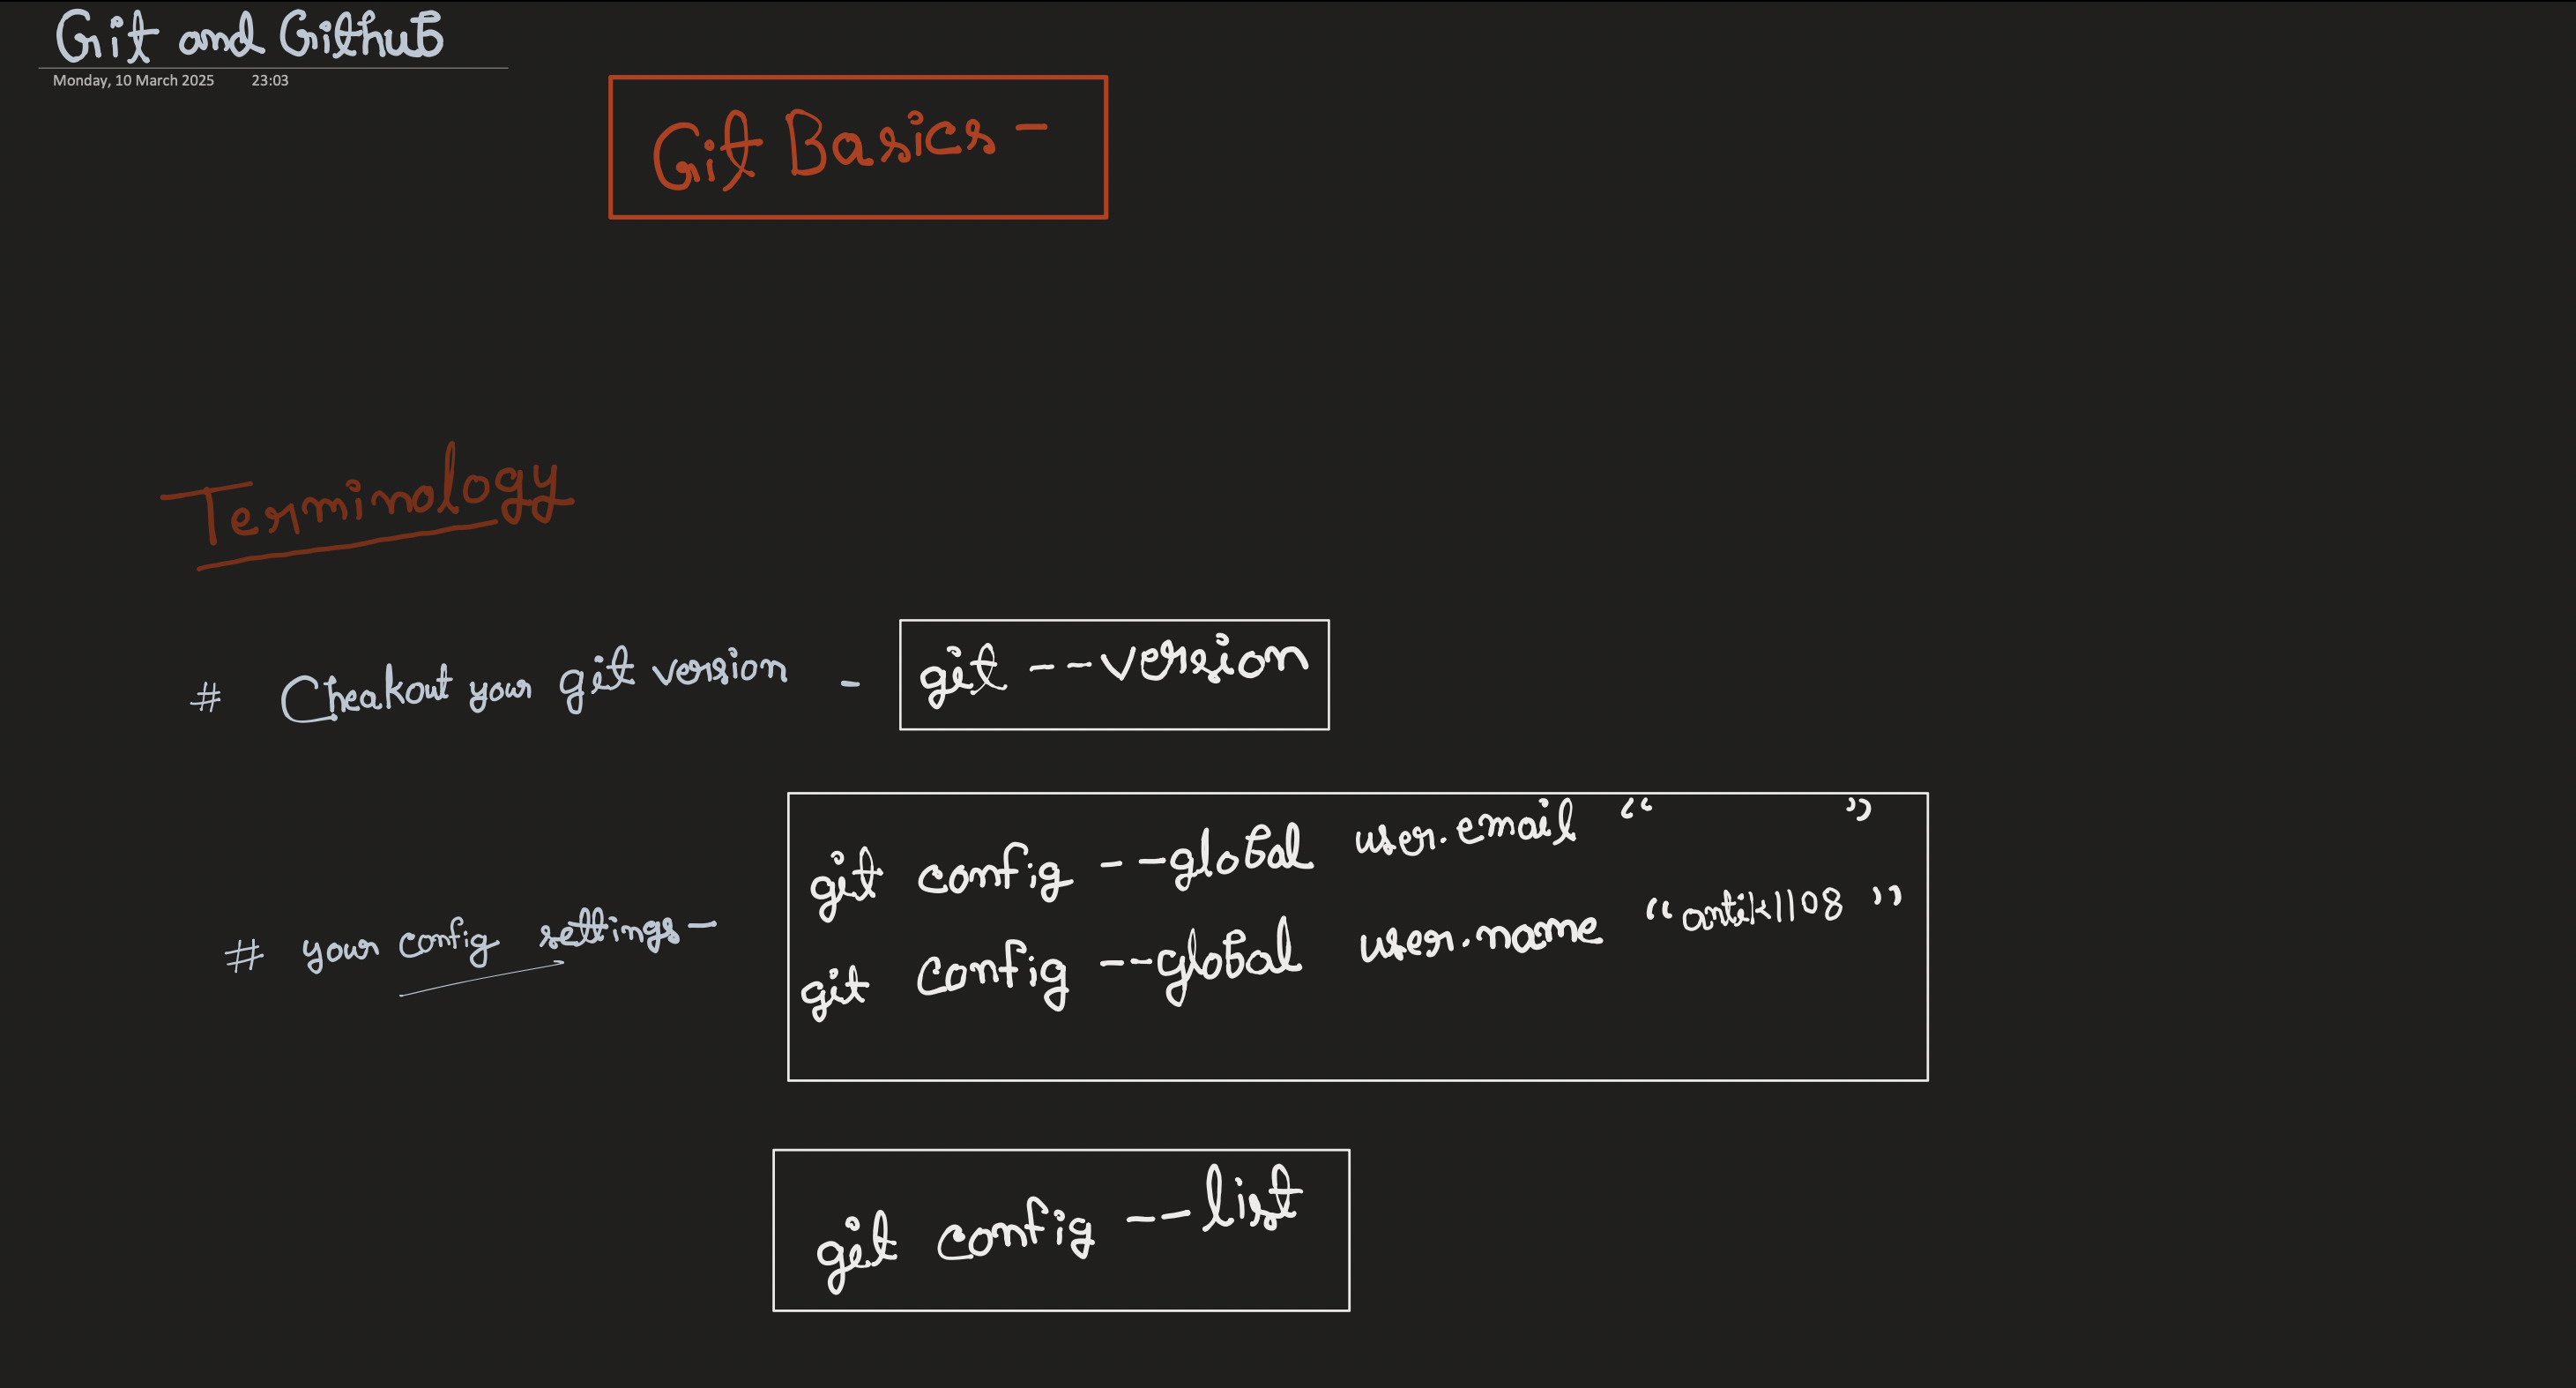 Git and Github
Monday, 10 March 2025 23:03
Git Basics -
Terminology
# Cheakout your git version - git --version
git config --global user.email “ ”
# your config settings -
git config --global user.name “antik1108”
git config --list